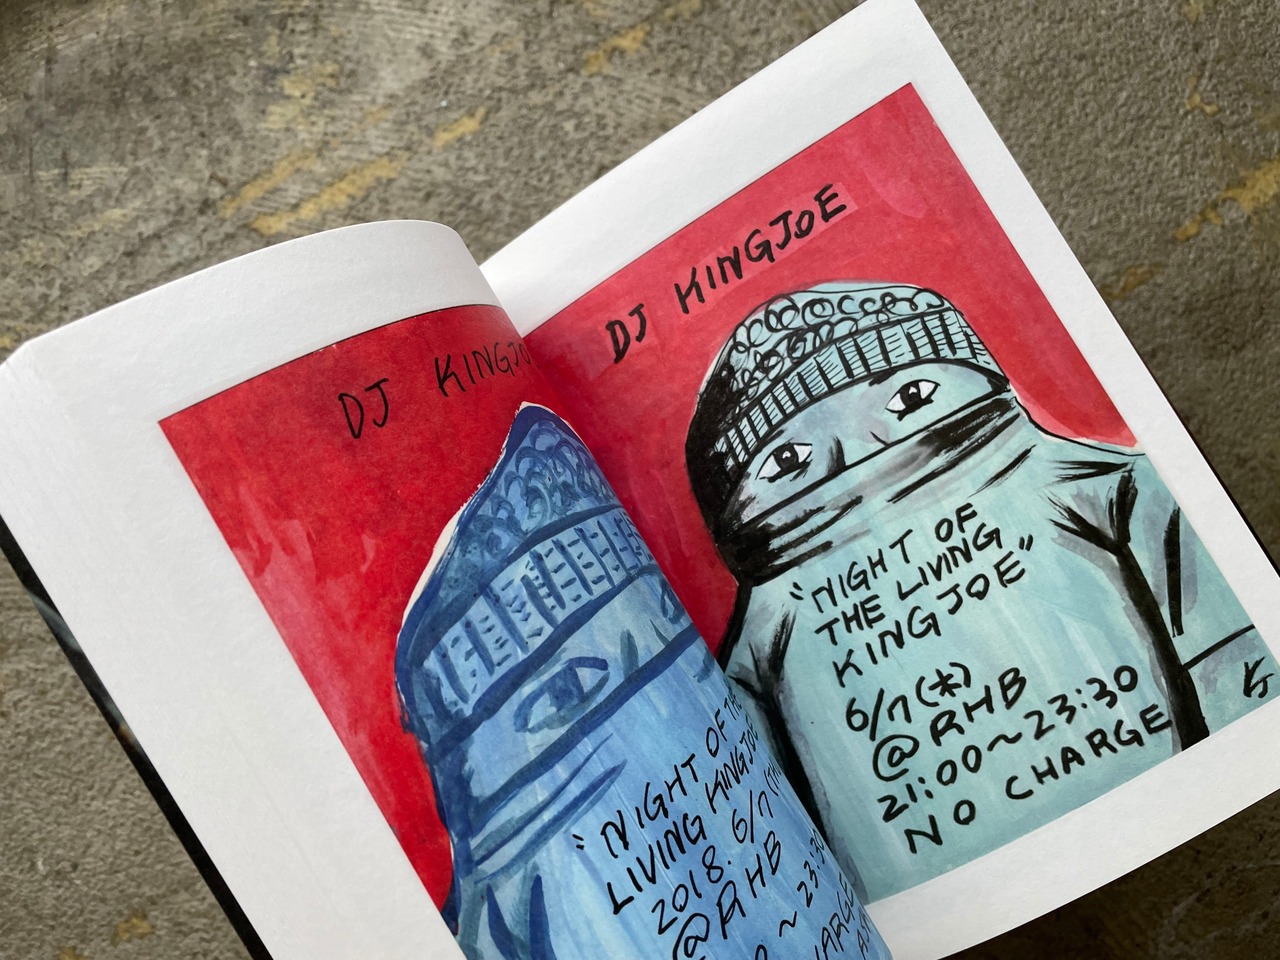 DJ KINGJO
"NIGHT OF THE
LIVING KINGJOE
2018. 6/7
@RHB
~ 23:30
DJ KINGJOE
"NIGHT OF
THE LIVING
KINGJOE"
6/7(木)
@RHB
21:00~23:30
NO CHARGE
KJ